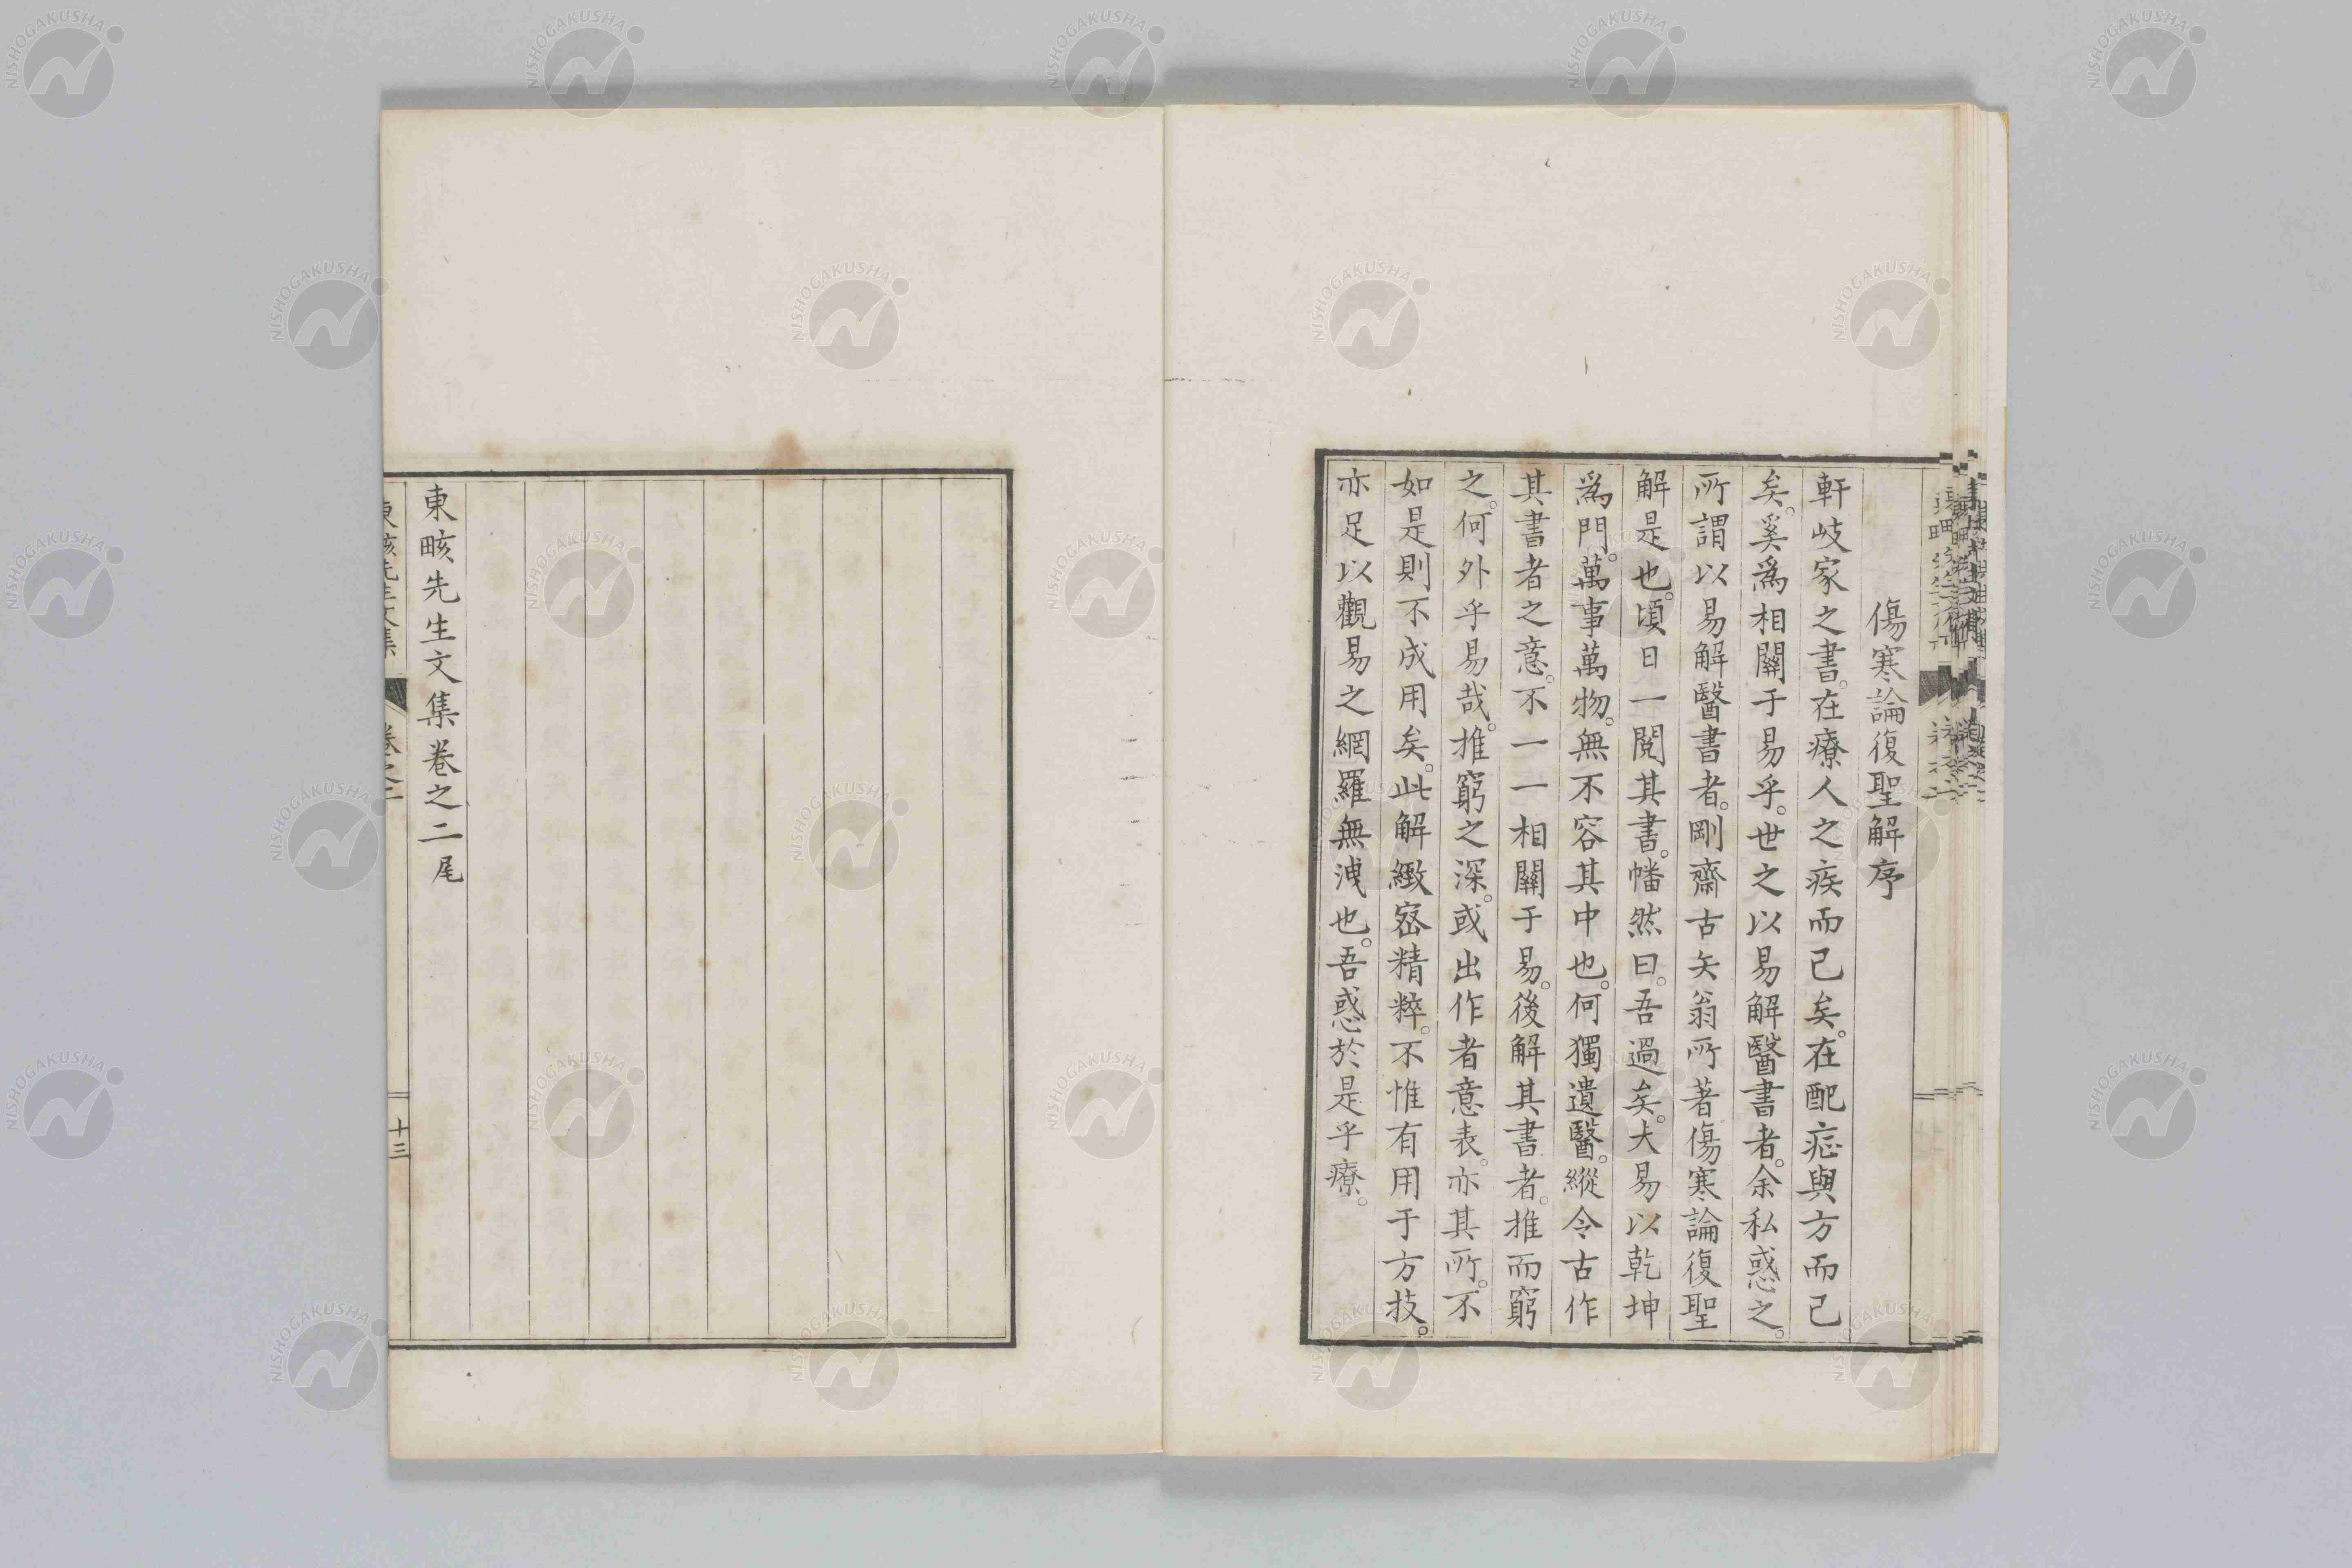 傷寒論復聖解序
軒岐家之書。在療人之疾而已矣。在配痣與方而已
矣。奚為相關于易乎。世之以易解醫書者。余私惑之。
所謂以易解醫書者。剛齋古矢翁所著傷寒論復聖
解是也。頃日一閱其書。幡然曰。吾過矣。夫易以乾坤
為門。萬事萬物。無不容其中也。何獨遺醫。縱令古作
其書者之意。不一一相關于易。後解其書者。推而窮
之。何外乎易哉。推窮之深。或出作者意表。亦其所。不
如是則不成用矣。此解緻密精粹。不惟有用于方技。
亦足以觀易之網羅無洩也。吾惑於是乎療。
東畡先生文集卷之二尾
東畡先生文集 卷之二 十三
NISHOGAKUSHA